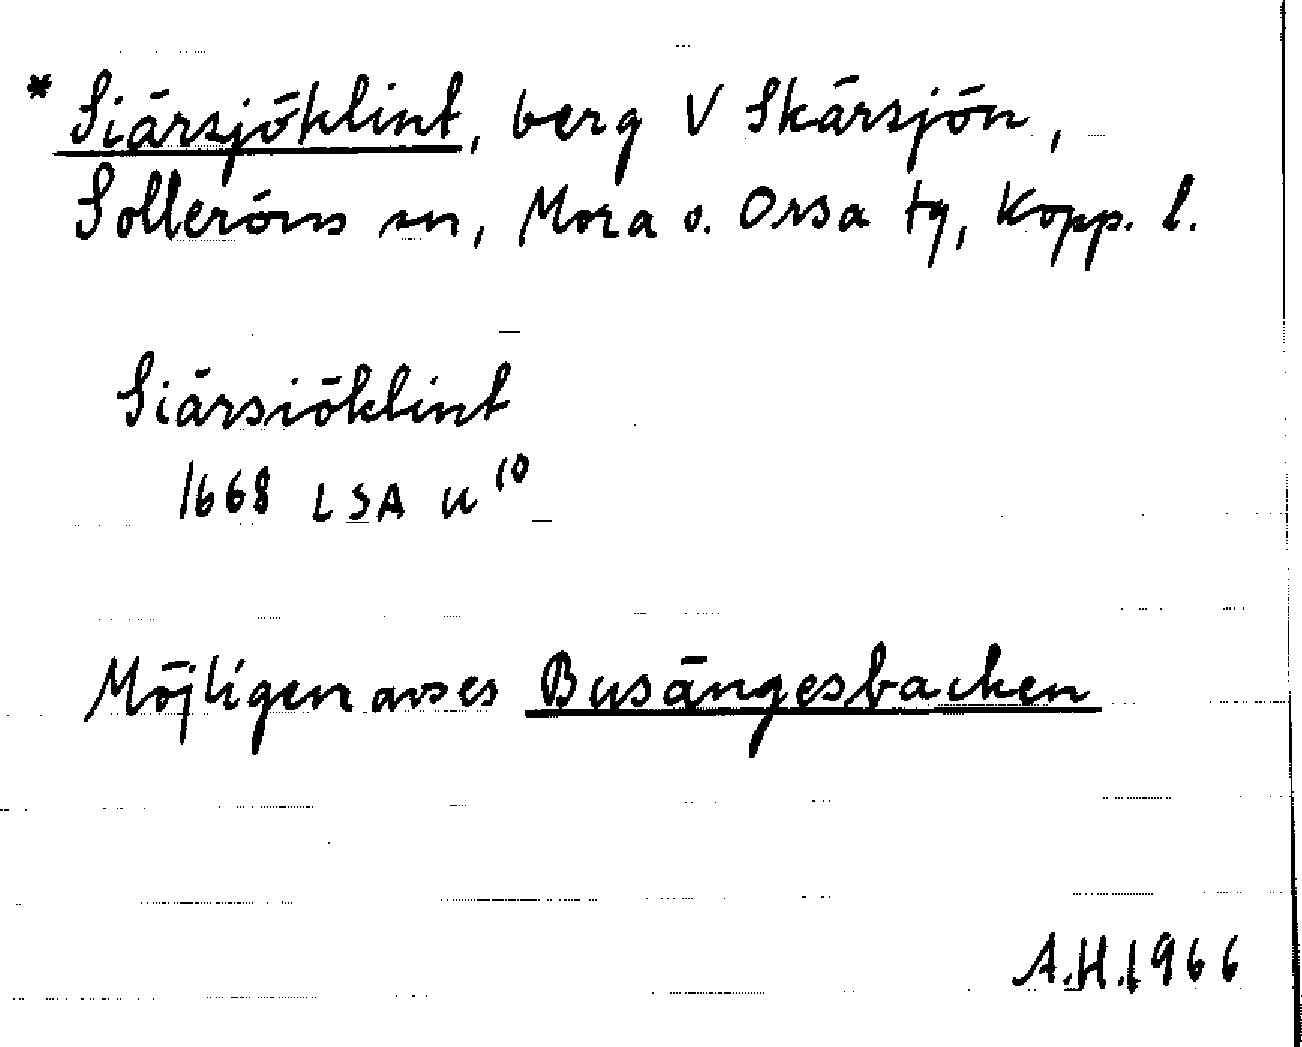 * Siärsjöklint, berg V Skärsjön,
Solleröns sn, Mora o. Orsa tg, Kopp. l.
Siärsiöklint
1668 LSA U 10
Möjligen avses Busängesbacken
A.H. 1966